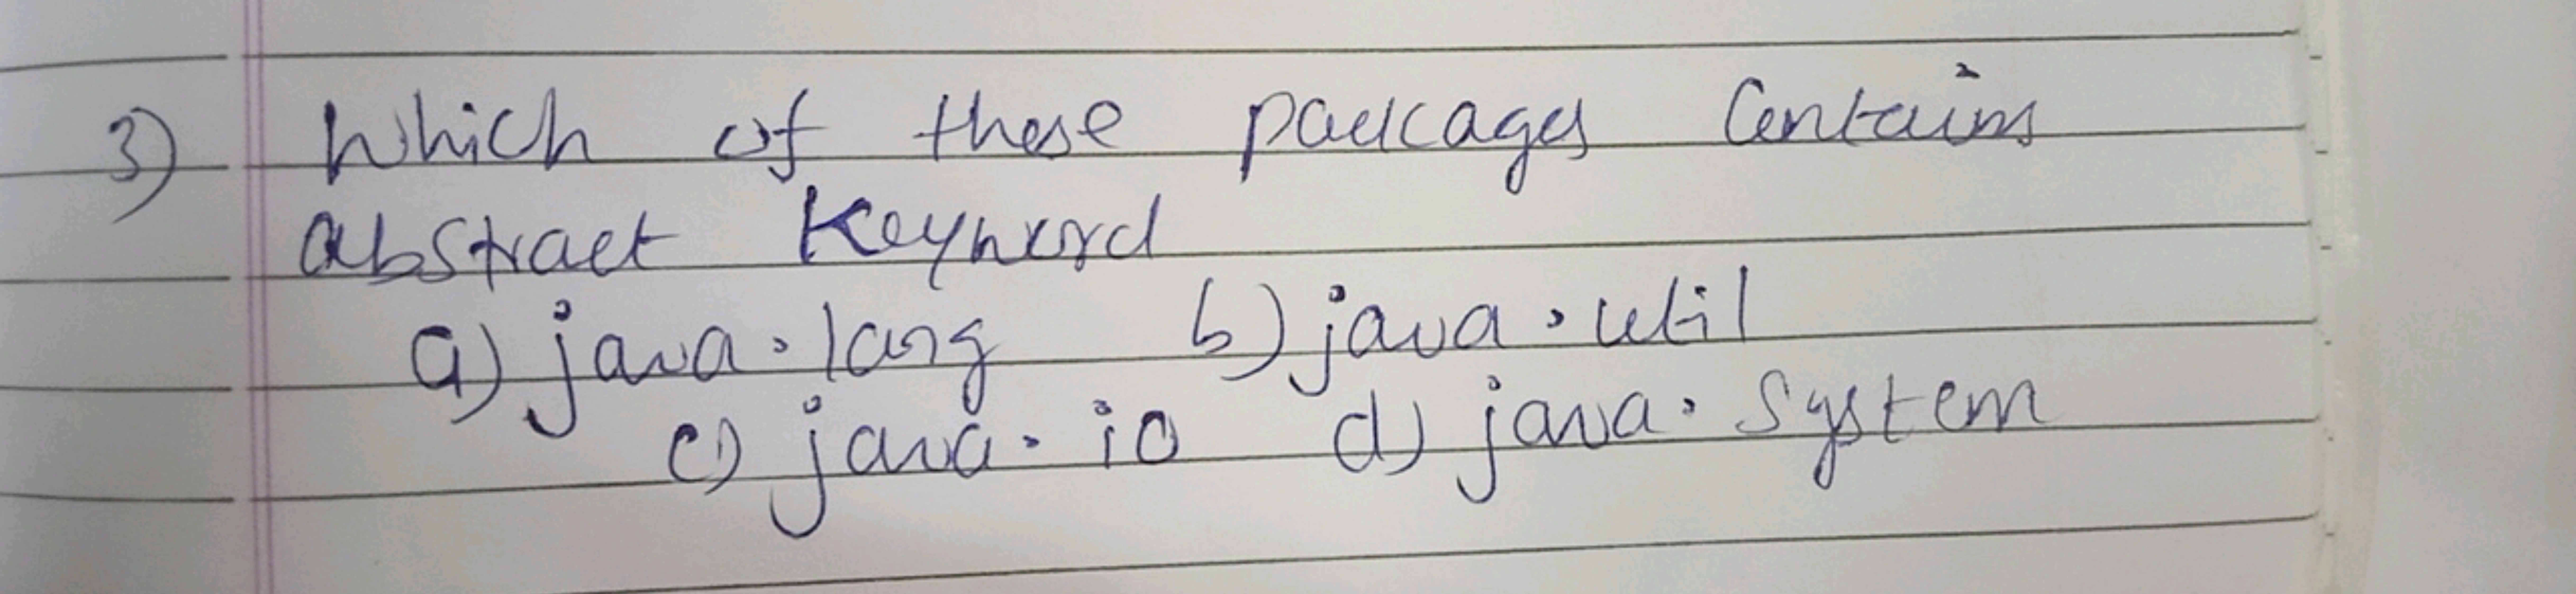 3) Which of these packages Contains
abstract Keyword
a) java.lang b) java.util
c) java.io d) java.System